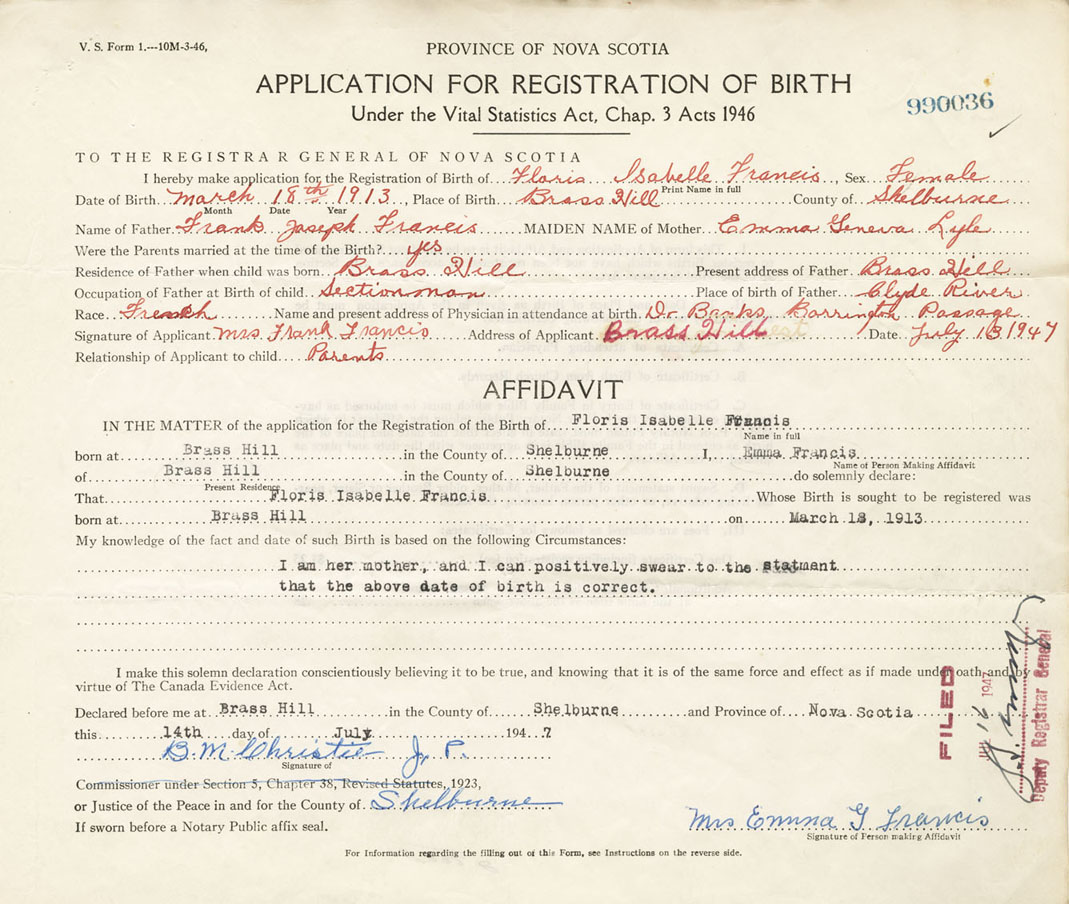 V. S. Form 1.---10M-3-46,
PROVINCE OF NOVA SCOTIA
APPLICATION FOR REGISTRATION OF BIRTH
990036
Under the Vital Statistics Act, Chap. 3 Acts 1946
TO THE REGISTRAR GENERAL OF NOVA SCOTIA
I hereby make application for the Registration of Birth of Floris Isabelle Francis, Sex Female
Print Name in full
Date of Birth March 18th 1913, Place of Birth Brass Hill County of Shelburne
Month Date Year
Name of Father Frank Joseph Francis MAIDEN NAME of Mother Emma Geneva Lyle
Were the Parents married at the time of the Birth? yes
Residence of Father when child was born Brass Hill Present address of Father Brass Hill
Occupation of Father at Birth of child Sectionman Place of birth of Father Clyde River
Race French Name and present address of Physician in attendance at birth Dr Banks Barrington Passage
Signature of Applicant Mrs Frank Francis Address of Applicant Brass Hill Date July 13 1947
Relationship of Applicant to child Parents
AFFIDAVIT
IN THE MATTER of the application for the Registration of the Birth of Floris Isabelle Francis
Name in full
born at Brass Hill in the County of Shelburne I, Emma Francis
Name of Person Making Affidavit
of Brass Hill in the County of Shelburne do solemnly declare:
Present Residence
That Floris Isabelle Francis Whose Birth is sought to be registered was
born at Brass Hill on March 18, 1913
My knowledge of the fact and date of such Birth is based on the following Circumstances:
I am her mother, and I can positively swear to the statment
that the above date of birth is correct.
I make this solemn declaration conscientiously believing it to be true, and knowing that it is of the same force and effect as if made under oath and by
virtue of The Canada Evidence Act.
Declared before me at Brass Hill in the County of Shelburne and Province of Nova Scotia
this 14th day of July 1947
B. M. Christie J. P.
Signature of
Commissioner under Section 5, Chapter 38, Revised Statutes, 1923,
or Justice of the Peace in and for the County of Shelburne
If sworn before a Notary Public affix seal.
Mrs Emma G Francis
Signature of Person making Affidavit
For Information regarding the filling out of this Form, see Instructions on the reverse side.
FILED
16 1947
Deputy Registrar General